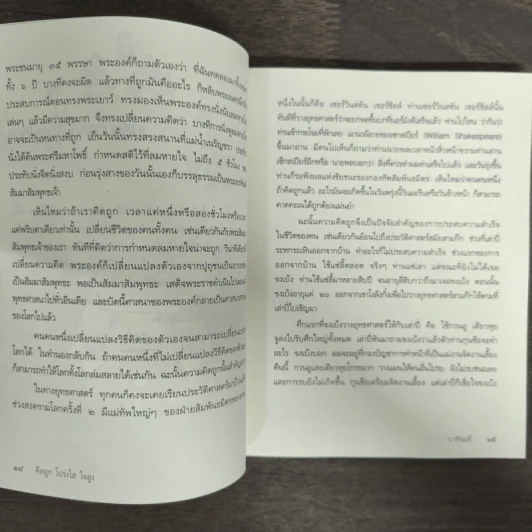 พระชนมายุ ๓๕ พรรษา พระองค์ก็ถามตัวเองว่า ที่ฉันทดลองมาทั้งหมด
ทั้ง ๖ ปี บางทีคงจะผิด แล้วทางที่ถูกมันคืออะไร ก็หลับพระเนตรนึกถึง
ประสบการณ์ตอนทรงพระเยาว์ ทรงมองเห็นพระองค์ทรงนั่ง
เล่นๆ แล้วมีความสุขมาก จึงทรงเปลี่ยนความคิดว่า บางทีการนั่งดูลมหายใจ
อาจจะเป็นหนทางที่ถูก เย็นวันนั้นทรงสรงสนานที่แม่น้ำเนรัญชรา
นั่งใต้ต้นพระศรีมหาโพธิ์ กำหนดสติไว้ที่ลมหายใจ ไม่ถึง ๕ ชั่วโมง
ประทับนั่งจิตนิ่งสงบ ก่อนรุ่งสางของวันนั้นเองก็บรรลุธรรมเป็นพระอรหันต
สัมมาสัมพุทธเจ้า
เห็นไหมว่าถ้าเราคิดถูก เวลาแค่หนึ่งหรือสองชั่วโมงหรือ
แค่พริบตาเดียวเท่านั้น เปลี่ยนชีวิตของคนทั้งคน เช่นเดียวกับพระสัมมา
สัมพุทธเจ้าของเรา ทันทีที่คิดว่าการกำหนดลมหายใจน่าจะถูก วันที่
เปลี่ยนความคิด พระองค์ก็เปลี่ยนแปลงตัวเองจากปุถุชนเป็นอารยชน
เป็นสัมมาสัมพุทธะ พอเป็นสัมมาสัมพุทธะ เสด็จพระราชดำเนินไป
พุทธศาสนาไปทั่วอินเดีย และบัดนี้ศาสนาของพระองค์กลายเป็นศาสนา
ของโลกไปแล้ว
คนคนหนึ่งเปลี่ยนแปลงวิธีคิดของตัวเองจนสามารถเปลี่ยนแปลง
โลกได้ ในทำนองกลับกัน ถ้าคนคนหนึ่งที่ไม่เปลี่ยนแปลงวิธีคิดของตัวเอง
ก็สามารถทำให้โลกทั้งโลกล่มสลายได้เช่นกัน ฉะนั้นความคิดถูกนั้นสำคัญมาก
ในทางยุทธศาสตร์ ทุกคนก็คงจะเคยเรียนประวัติศาสตร์มาบ้าง
ช่วงสงครามโลกครั้งที่ ๒ มีแม่ทัพใหญ่ๆ ของฝ่ายสัมพันธมิตร
๑๘ คิดถูก โปร่งใส ใจสูง
หนึ่งในนั้นก็คือ เซอร์วินสตัน เชอร์ชิลล์ ท่านเซอร์วินสตัน เชอร์ชิลล์นั้น
ทันทีที่วางยุทธศาสตร์ว่าจะยกพลขึ้นบกที่นอร์มังดีเสร็จแล้ว ท่านไปไหน ว่ากันว่า
ท่านเข้ากระโจมที่พักเลย เอานะนิยายของเชกสเปียร์ (William Shakespeare)
ขึ้นมาอ่าน มีคนไปเห็นก็ถามว่าท่านนายพลเวลาหน้าสิ่วหน้าขวานท่านอ่าน
เช็กสเปียร์อีกหรือ นายพลบอกว่า สิ่งที่ควรทำผมทำเสร็จไปแล้ว และวันรุ่งขึ้น
ท่านก็รอฟังผลแห่งชัยชนะของกองทัพสัมพันธมิตร เห็นไหมว่าคนคนหนึ่ง
ถ้าคิดถูกแล้ว อะไรมันจะเกิดขึ้นในวันพรุ่งนี้วันมะรืนหรือวันข้างหน้า ก็สามารถ
คาดคะเนได้ถูกต้องแม่นยำ
ฉะนั้นความคิดถูกจึงเป็นปัจจัยสำคัญของการประสบความสำเร็จ
ในชีวิตของคน เช่นเดียวกันย้อนไปถึงประวัติศาสตร์สมัยสามก๊ก ช่วงที่เล่าปี่
ระหกระเหินออกจากบ้าน ทำอะไรก็ไม่ประสบความสำเร็จ ช่วงแรกของการ
ออกจากบ้าน ใช้แซ่ลี้ตลอด จริงๆ ท่านแซ่เล่า แต่ขณะที่ยังไม่ได้เจอ
ขงเบ้ง ท่านใช้แซ่ลี้มาหลายสิบปี จนอายุสี่สิบกว่าถึงมาเจอขงเบ้ง ตอนนั้น
ขงเบ้งอายุแค่ ๒๖ ออกจากเขาโงลังกั๋งเพื่อไปวางยุทธศาสตร์สามก๊กให้ตามที่
เล่าปี่ไปเชิญมา
ศึกแรกที่ขงเบ้งวางยุทธศาสตร์ให้กับเล่าปี่ คือ ใช้กวนอู เตียวหุย
จูล่งไปรับศึกใหญ่ทั้งหมด เล่าปี่ก็หันมาถามขงเบ้งว่าแล้วตัวท่านกุนซือจะทำ
อะไร ขงเบ้งบอก ผมจะอยู่ที่กองบัญชาการทำหน้าที่เป็นแม่งานจัดงานเลี้ยง
คืนนี้ กวนอูและเตียวหุยโกรธมาก วางแผนให้คนอื่นไปรบ ยังไม่รบชนะเลย
และการรบยังไม่เกิดขึ้น กุนซือเตรียมจัดงานเลี้ยง แต่เล่าปี่ก็เชื่อใจขงเบ้ง
ว.วชิรเมธี ๑๙